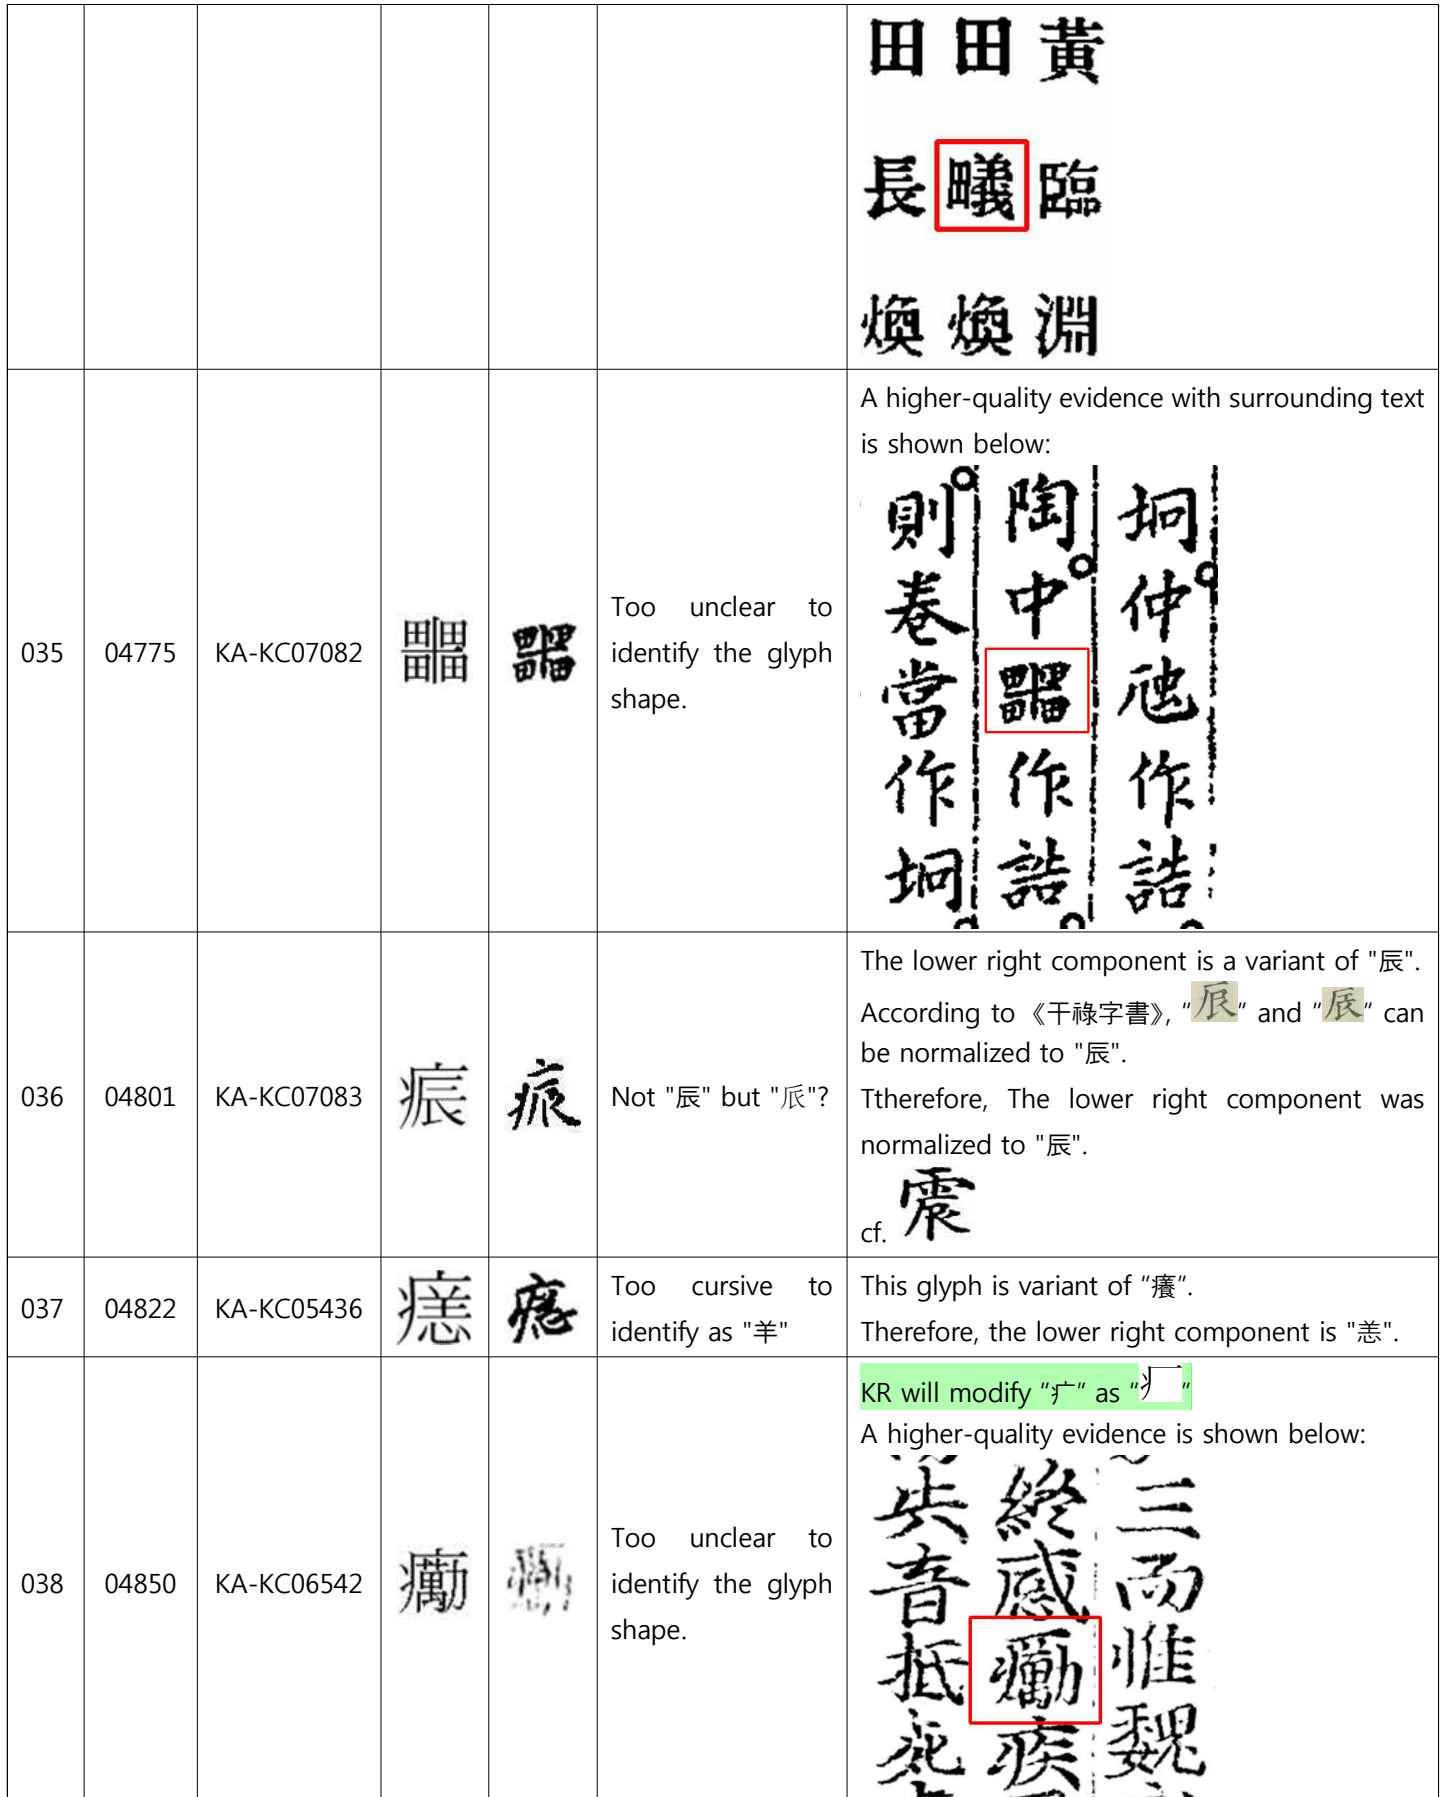 田 田 黃
長 𪽛 臨
煥 煥 淵
035 04775 KA-KC07082
Too unclear to
identify the glyph
shape.
A higher-quality evidence with surrounding text
is shown below:
則 陶 坰
卷 中 仲
當 作 虺
作 誥 作
坰 誥
036 04801 KA-KC07083
Not "辰" but "𠂢"?
The lower right component is a variant of "辰".
According to 《干祿字書》, " " and " " can
be normalized to "辰".
Ttherefore, The lower right component was
normalized to "辰".
cf. 震
037 04822 KA-KC05436
Too cursive to
identify as "羊"
This glyph is variant of “癢”.
Therefore, the lower right component is "恙".
038 04850 KA-KC06542
Too unclear to
identify the glyph
shape.
KR will modify “疒” as “ ”
A higher-quality evidence is shown below:
終 三
音 感 而
抵 惟
死 疾 魏